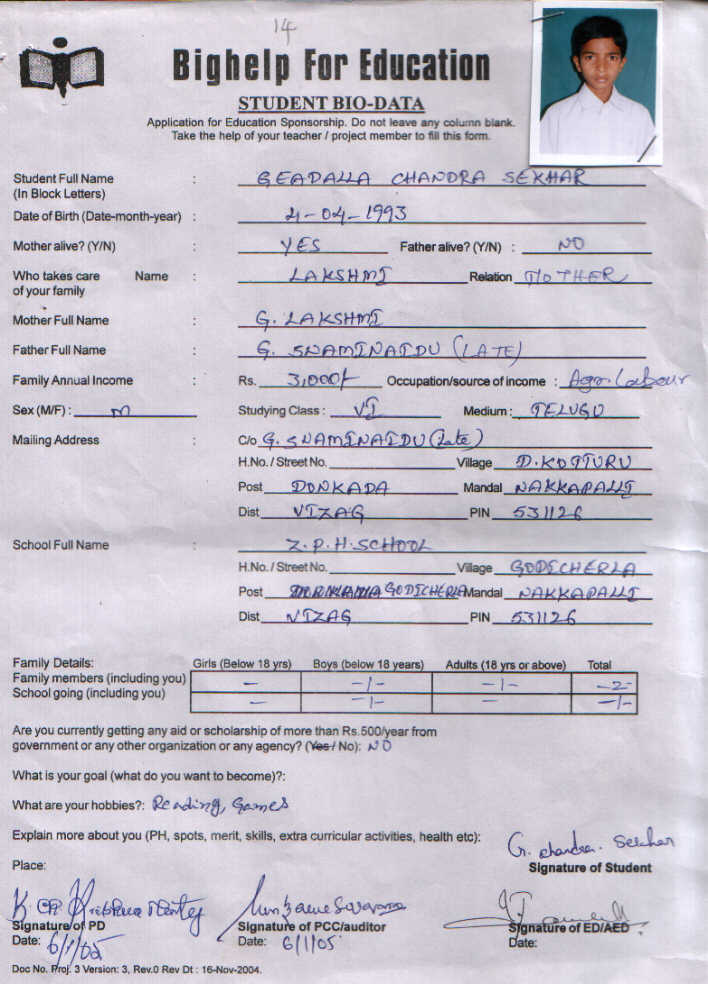 14
Bighelp For Education
STUDENT BIO-DATA
Application for Education Sponsorship. Do not leave any column blank.
Take the help of your teacher / project member to fill this form.
Student Full Name : GEADALLA CHANDRA SEKHAR
(In Block Letters)
Date of Birth (Date-month-year) : 4-04-1993
Mother alive? (Y/N) : YES Father alive? (Y/N) : NO
Who takes care Name : LAKSHMI Relation MOTHER
of your family
Mother Full Name : G. LAKSHMI
Father Full Name : G. SWAMINAIDU (LATE)
Family Annual Income : Rs. 3,000/- Occupation/source of income : Agr. Labour
Sex (M/F) : m Studying Class : VI Medium : TELUGU
Mailing Address : C/o G. SWAMINAIDU (Late)
H.No. / Street No. Village D. KOTTURU
Post DONKADA Mandal NAKKAPALLI
Dist VIZAG PIN 531126
School Full Name : Z.P.H. SCHOOL
H.No. / Street No. Village GODICHERLA
Post GODICHERLA Mandal NAKKAPALLI
Dist VIZAG PIN 531126
Family Details: Girls (Below 18 yrs) Boys (below 18 years) Adults (18 yrs or above) Total
Family members (including you) - -1- -1- -2-
School going (including you) - -1- - -1-
Are you currently getting any aid or scholarship of more than Rs.500/year from
government or any other organization or any agency? (Yes / No): NO
What is your goal (what do you want to become)?:
What are your hobbies?: Reading, Games
Explain more about you (PH, spots, merit, skills, extra curricular activities, health etc):
G. chandra. Sekhar
Signature of Student
Place:
Signature of PD Signature of PCC/auditor Signature of ED/AED
Date: 6/1/05 Date: 6/1/05 Date:
Doc No. Proj. 3 Version: 3, Rev.0 Rev Dt : 16-Nov-2004.